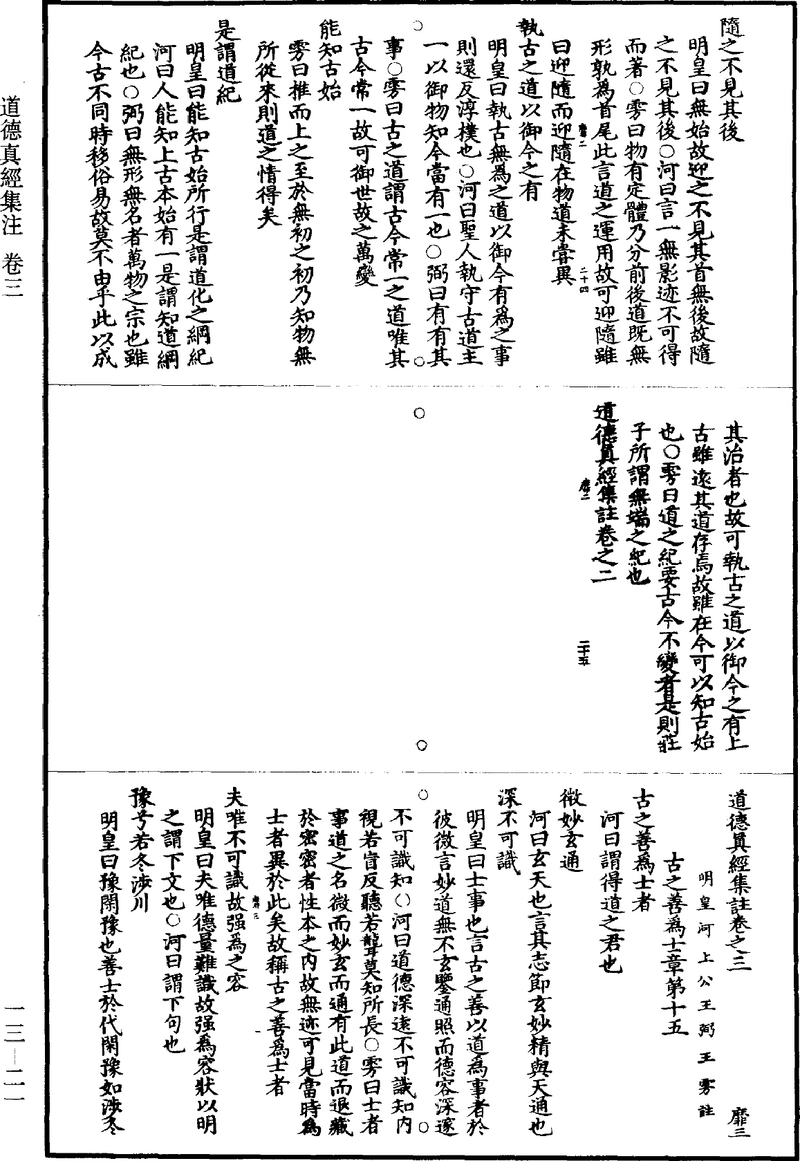 隨之不見其後
明皇曰無始故迎之不見其首無後故隨
之不見其後○河曰言一無影迹不可得
而著○雱曰物有定體乃分前後道既無
形孰為首尾此言道之運用故可迎隨雖
靡二 二十四
曰迎隨而迎隨在物道未嘗異
執古之道以御今之有
明皇曰執古無為之道以御今有為之事
則還反淳樸也○河曰聖人執守古道主
一以御物知今當有一也○弼曰有有其
事○雱曰古之道謂古今常一之道唯其
古今常一故可御世故之萬變
能知古始
雱曰推而上之至於無初之初乃知物無
所從來則道之情得矣
是謂道紀
明皇曰能知古始所行是謂道化之綱紀
河曰人能知上古本始有一是謂知道綱
紀也○弼曰無形無名者萬物之宗也雖
今古不同時移俗易故莫不由乎此以成
其治者也故可執古之道以御今之有上
古雖遠其道存焉故雖在今可以知古始
也○雱曰道之紀要古今不變者是則莊
子所謂無端之紀也
靡二 二十五
道德真經集註卷之二
道德真經集註卷之三 靡三
明皇河上公王弼王雱註
古之善為士章第十五
古之善為士者
河曰謂得道之君也
微妙玄通
河曰玄天也言其志節玄妙精與天通也
深不可識
明皇曰士事也言古之善以道為事者於
彼微言妙道無不玄鑒通照而德容深邃
不可識知○河曰道德深遠不可識知內
視若盲反聽若聾莫知所長○雱曰士者
事道之名微而妙玄而通有此道而退藏
於密密者性本之內故無迹可見當時為
士者異於此矣故稱古之善為士者
靡三
夫唯不可識故强為之容
明皇曰夫唯德量難識故强為容狀以明
之謂下文也○河曰謂下句也
豫兮若冬涉川
明皇曰豫閑豫也善士於代閑豫如涉冬
道德真經集注 卷三
一三—二一